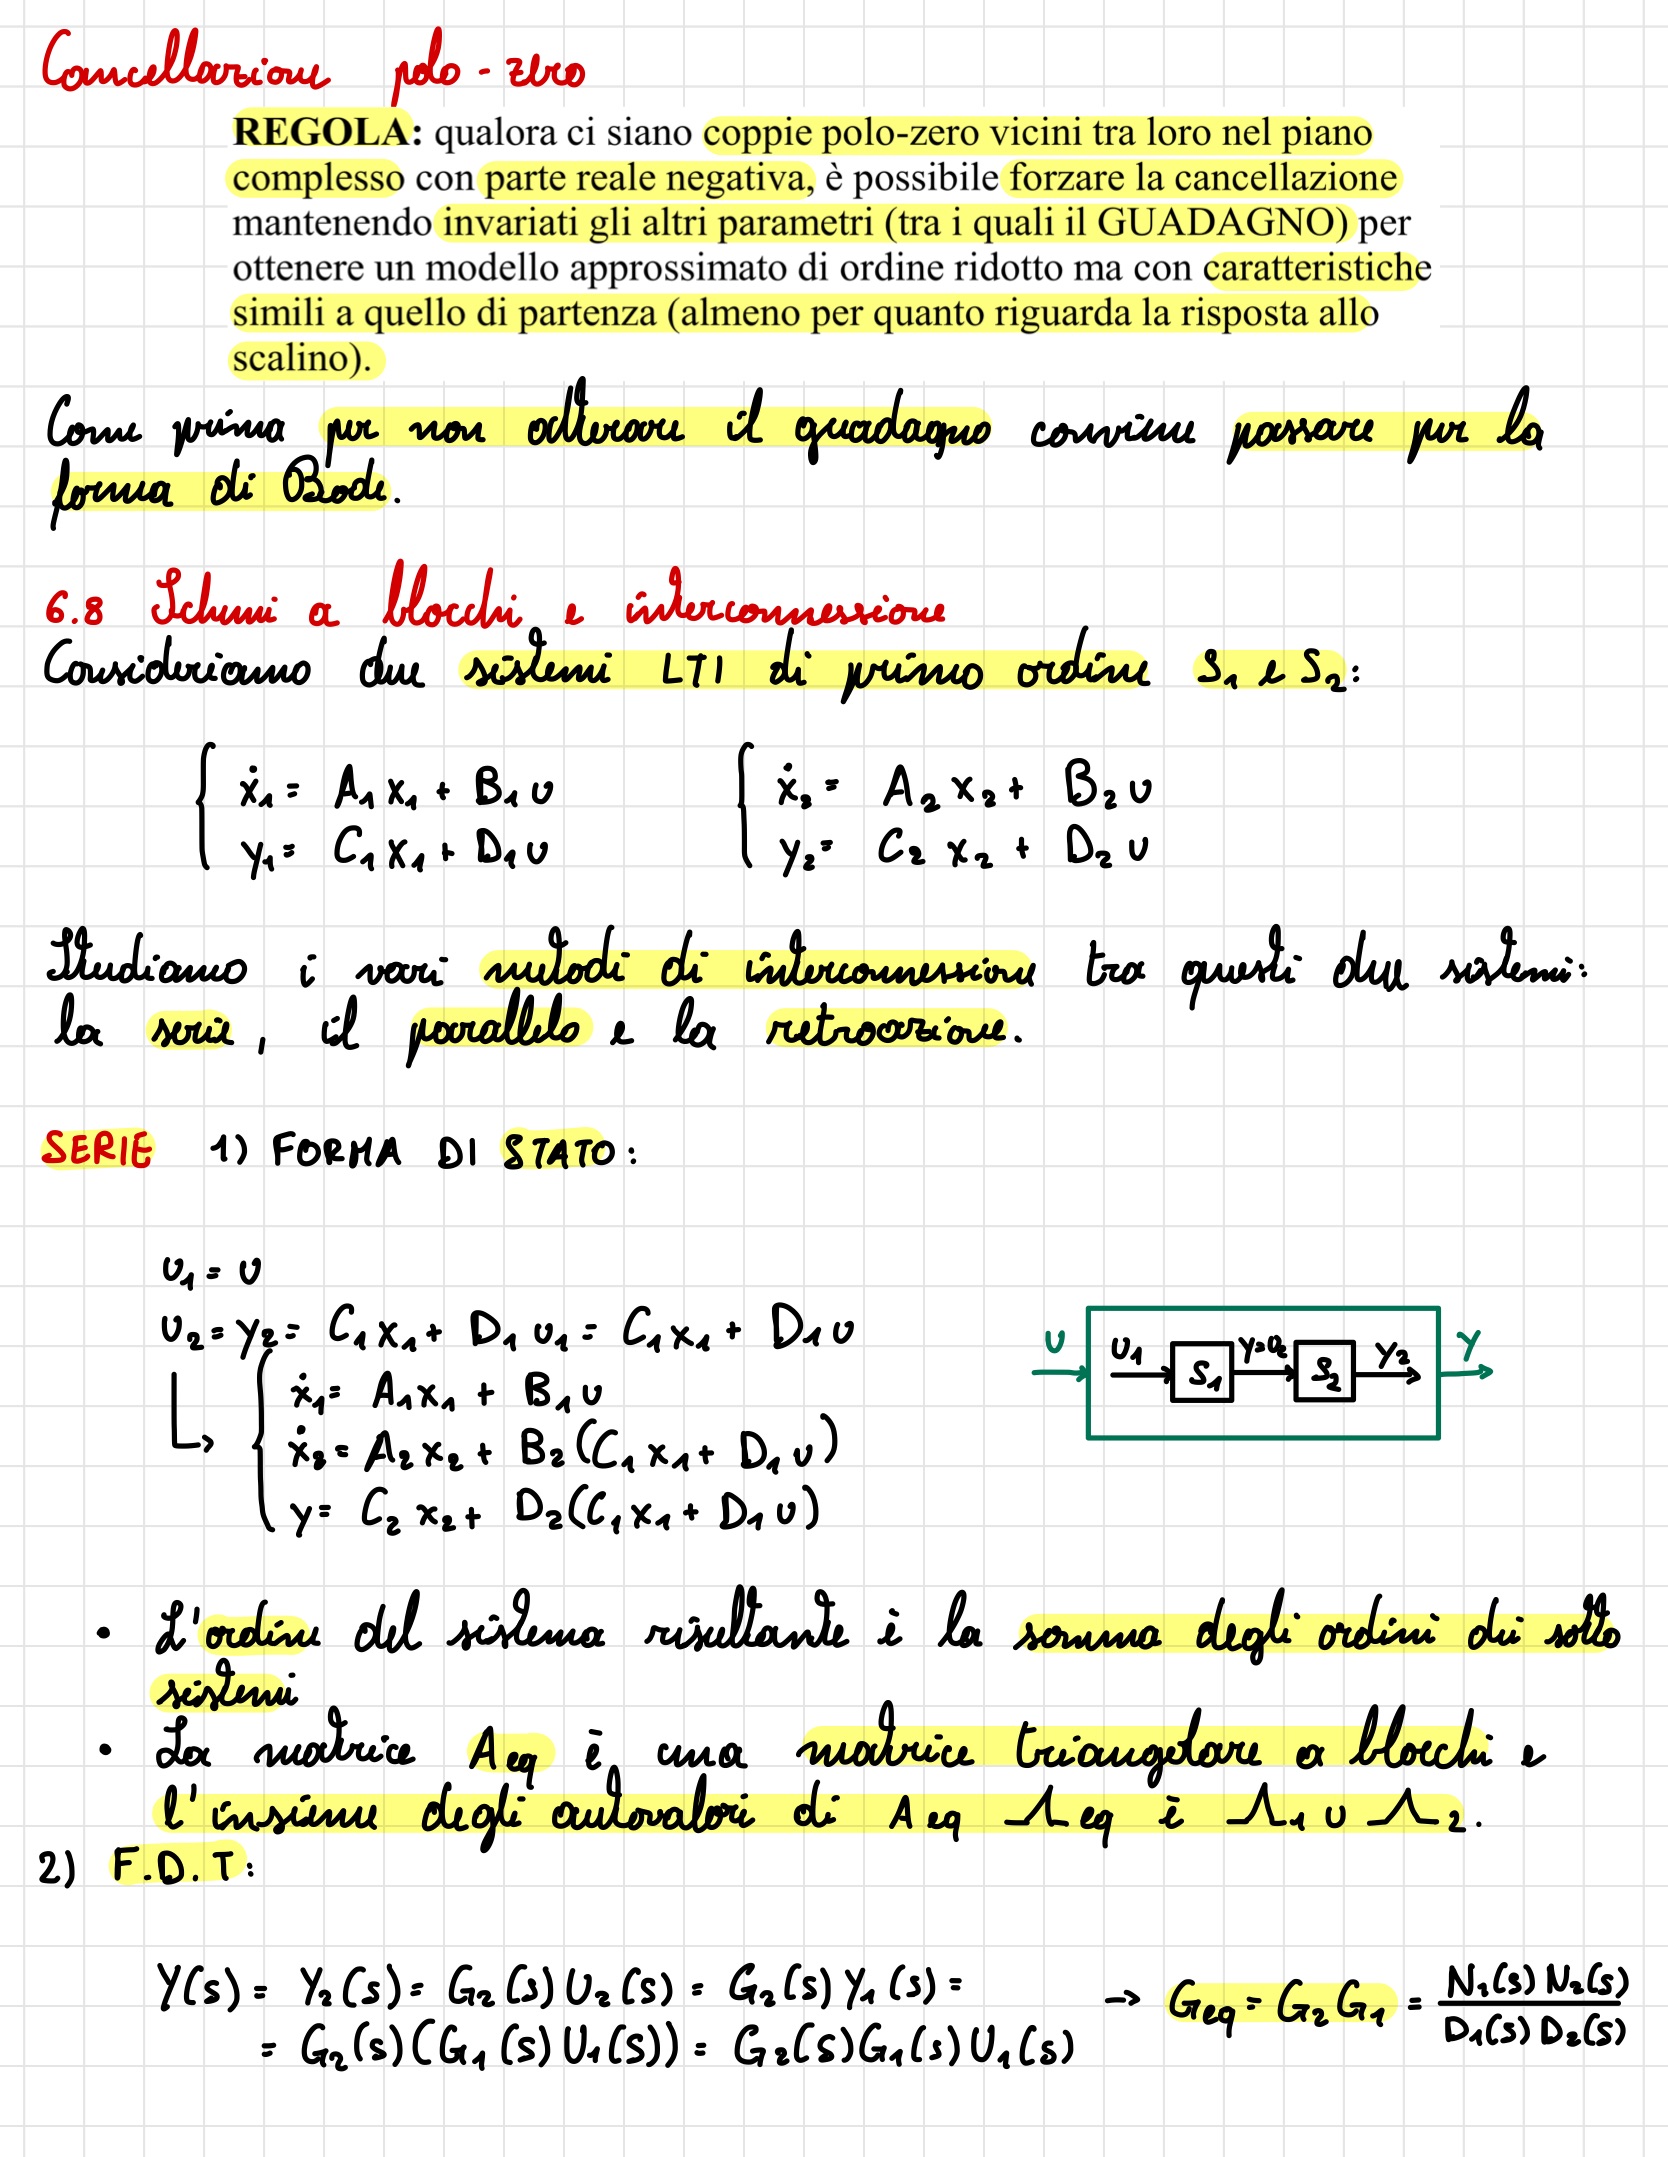 Cancellazione polo-zero
REGOLA: qualora ci siano coppie polo-zero vicini tra loro nel piano
complesso con parte reale negativa, è possibile forzare la cancellazione
mantenendo invariati gli altri parametri (tra i quali il GUADAGNO) per
ottenere un modello approssimato di ordine ridotto ma con caratteristiche
simili a quello di partenza (almeno per quanto riguarda la risposta allo
scalino).
Come prima per non alterare il guadagno conviene passare per la
forma di Bode.
6.8 Schemi a blocchi e interconnessione
Consideriamo due sistemi LTI di primo ordine S₁ e S₂:
ẋ₁ = A₁x₁ + B₁u
ẋ₂ = A₂x₂ + B₂u
y₁ = C₁x₁ + D₁u
y₂ = C₂x₂ + D₂u
Studiamo i vari metodi di interconnessione tra questi due sistemi:
la serie, il parallelo e la retroazione.
SERIE 1) FORMA DI STATO:
u₁ = u
u₂ = y₂ = C₁x₁ + D₁u₁ = C₁x₁ + D₁u
ẋ₁ = A₁x₁ + B₁u
ẋ₂ = A₂x₂ + B₂(C₁x₁ + D₁u)
y = C₂x₂ + D₂(C₁x₁ + D₁u)
u u₁ S₁ y=u₂ S₂ y₂ y
• L'ordine del sistema risultante è la somma degli ordini dei sotto
sistemi
• La matrice Aeq è una matrice triangolare a blocchi e
l'insieme degli autovalori di Aeq Λeq è Λ₁ ∪ Λ₂.
2) F.D.T:
Y(s) = Y₂(s) = G₂(s)U₂(s) = G₂(s)Y₁(s) =
= G₂(s)(G₁(s)U₁(s)) = G₂(s)G₁(s)U₁(s)
→ Geq = G₂G₁ = N₁(s)N₂(s) / D₁(s)D₂(s)